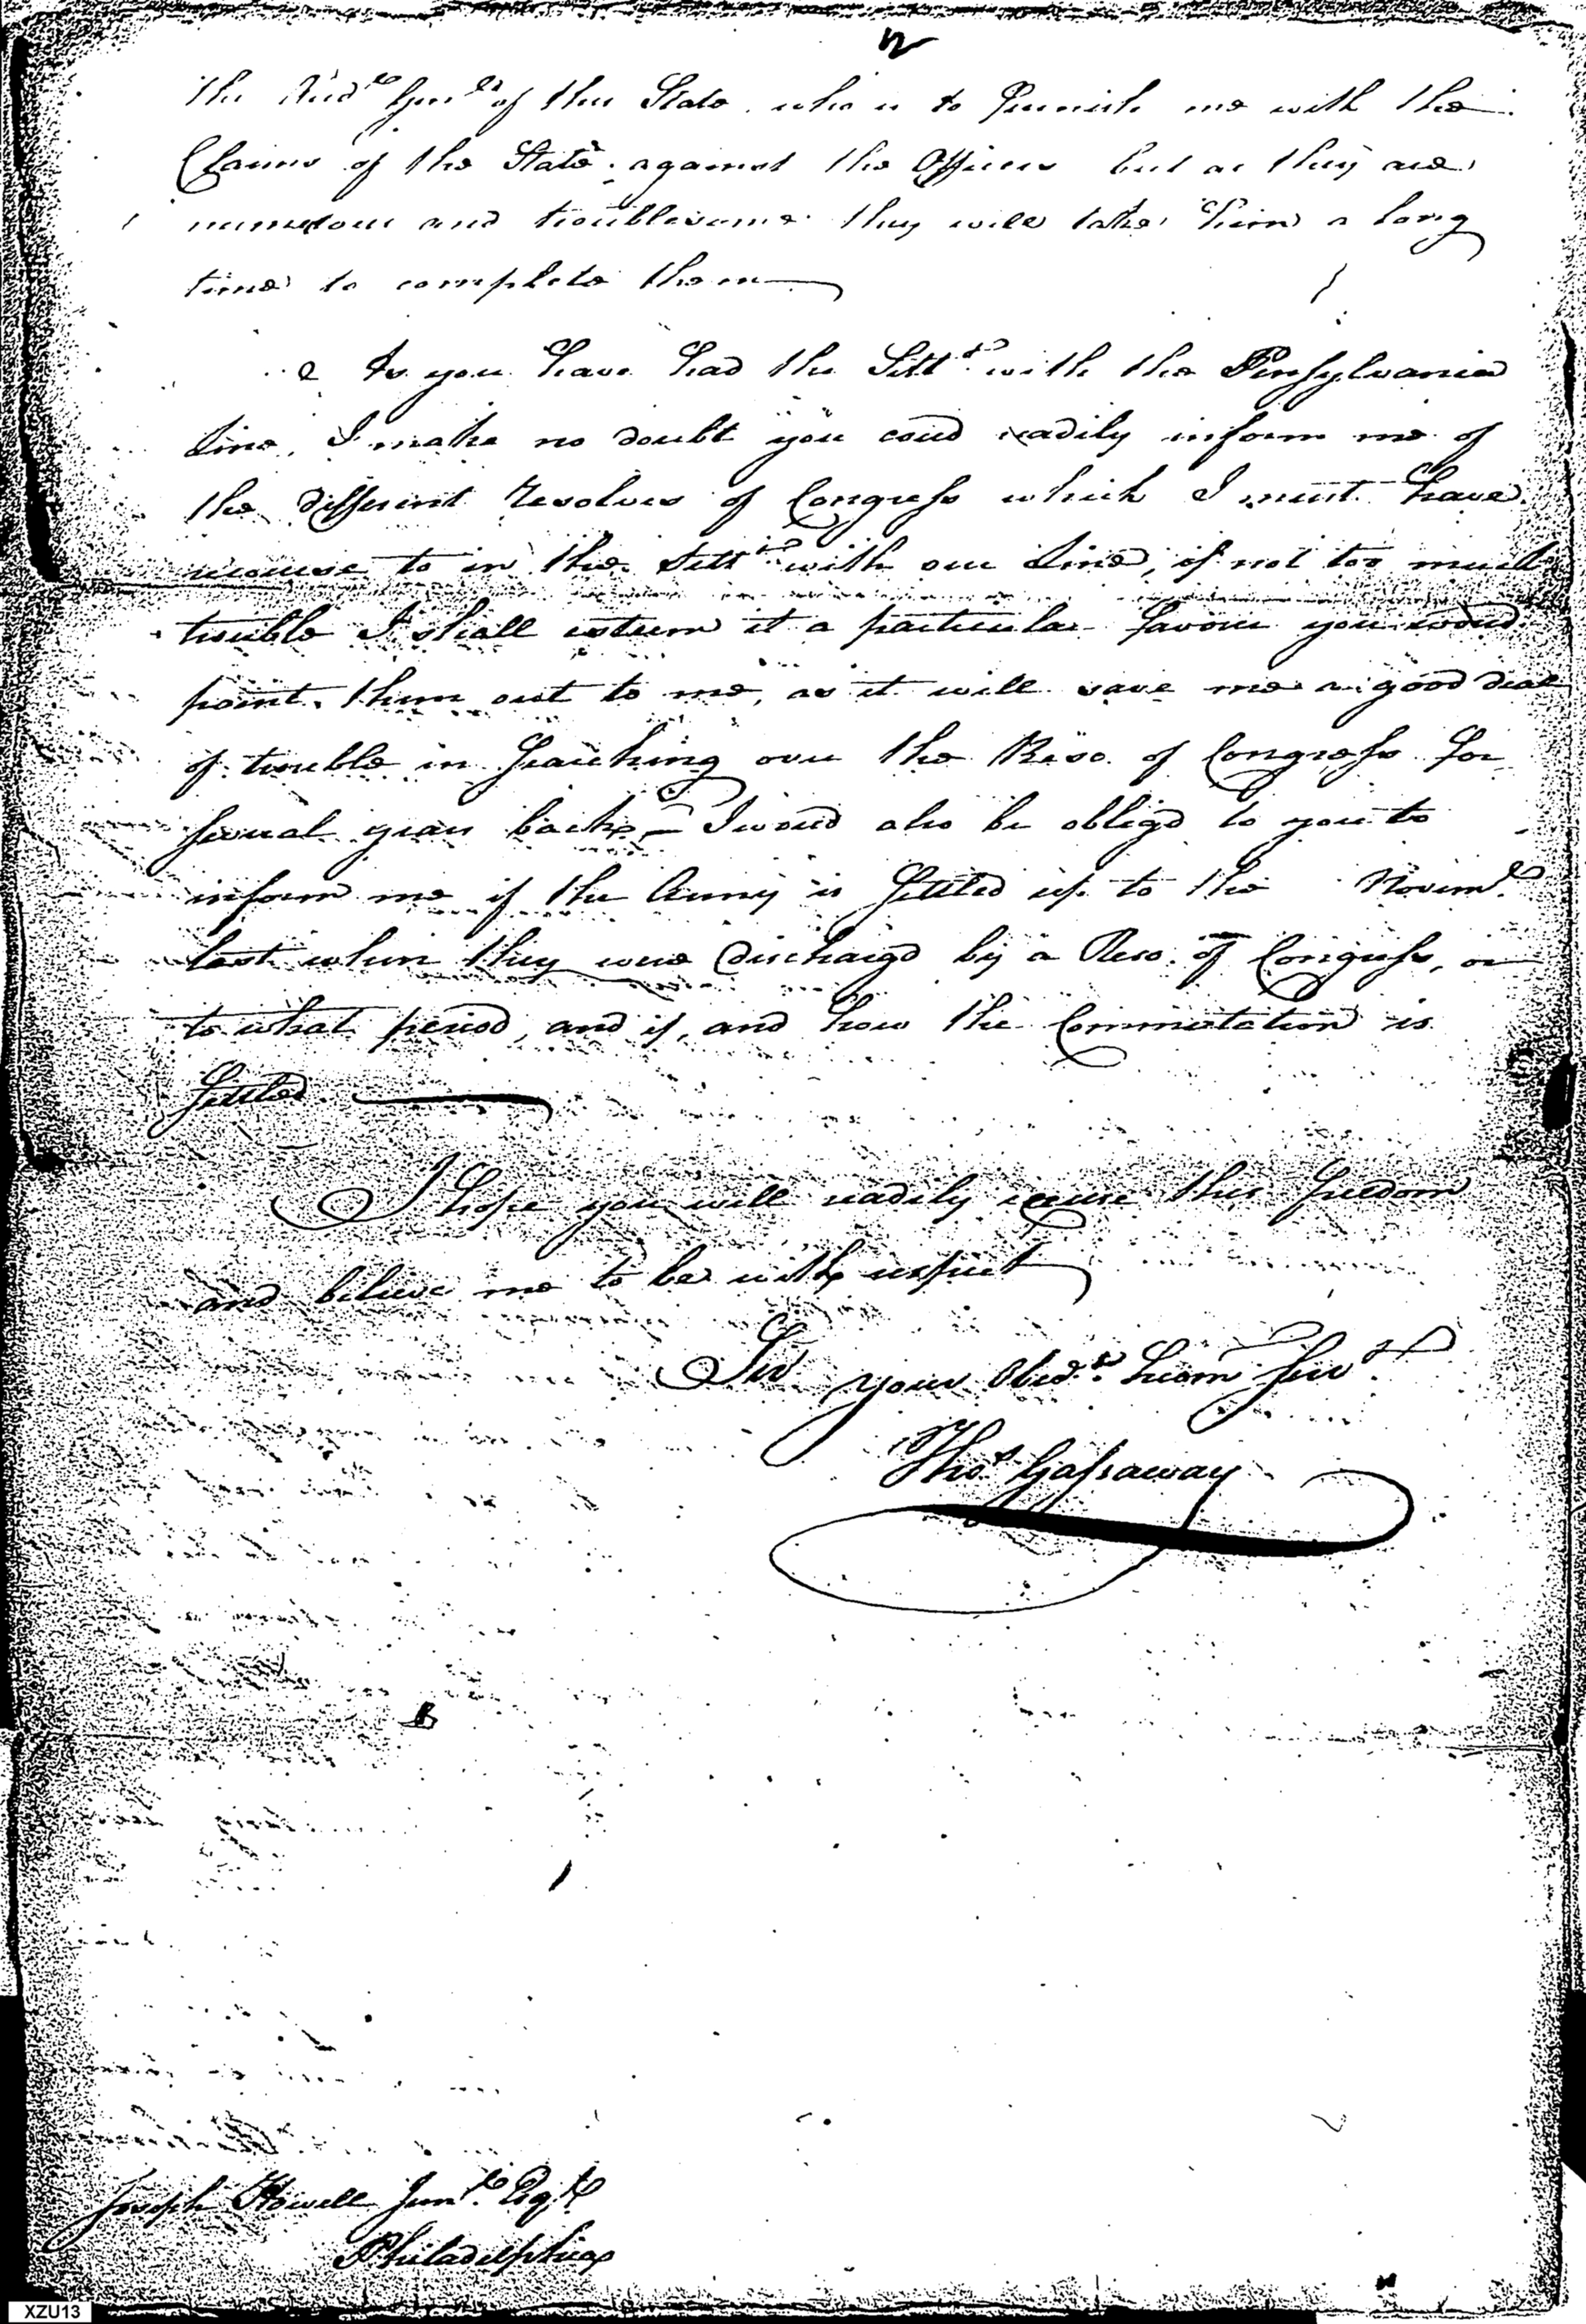 2
the Aud.r Gen.l of this State who is to Furnish me with the
Claims of the State against the Officers but as they are
numerous and troublesome they will take him a long
time to complete them
As you have had the Sett.t with the Pensylvania
Line, I make no doubt you coud readily inform me of
the different resolves of Congress which I must have
recourse to in the Sett.t with our Line, if not too much
trouble I shall esteem it a particular favour you woud
point them out to me, as it will save me a good deal
of trouble in Searching over the Reso. of Congress for
several years back — I woud also be obligd to you to
inform me if the Army is Settled up to the Novem.r
last when they were dischargd by a Reso. of Congress, or
to what period, and if, and how the Commutation is
Settled
I hope you will readily excuse this freedom
and believe me to be with respect
Sir your Obed.t Hum Ser.t
Tho.s Gassaway
Joseph Howell Jun.r Esq.r
Philadelphia
XZU13